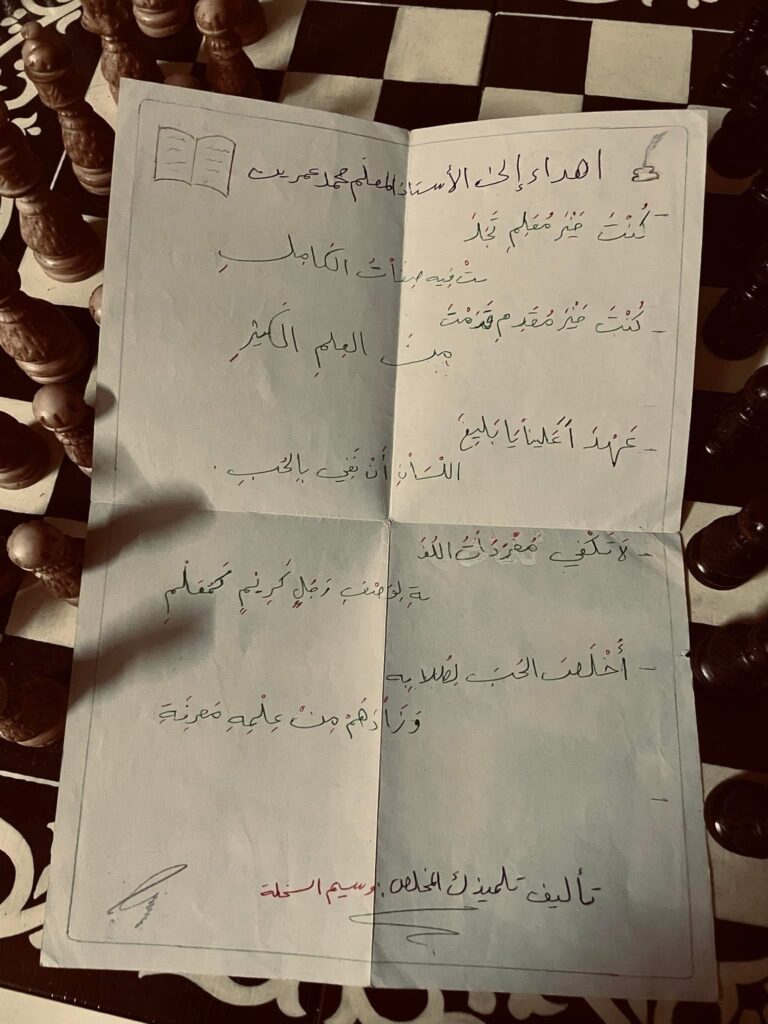 اهداء إلى الأستاذ المعلم محمد عمرين
- كُنْتَ خَيْرَ مُعَلِمِ تَجَلَ
تْ فِيه صِفَاتُ الكَامِلِ
- كُنْتَ خَيْرَ مُقَدِمِ قَدَمْتَ
مِنَ العِلمِ الكَثِيْرِ
- عَهْدَاً عَلينَا يَا بَلِيغَ
اللْسَانِ أَنْ نَفِي بِالحُبِ .
- لَا تَكْفِي مُفْرَدَاتُ اللُغَ
ةِ لِوَصْفِ رَجُلٍ كَرِيْمٍ كَمُعَلْمِ
- أَخْلَصَ الحُبَ لِطُلابِه
وَزَادَهُمْ مِنْ عِلْمِهِ مَعرِفَةِ
-
تأليف تلميذك المخلص : وسيم السخلة